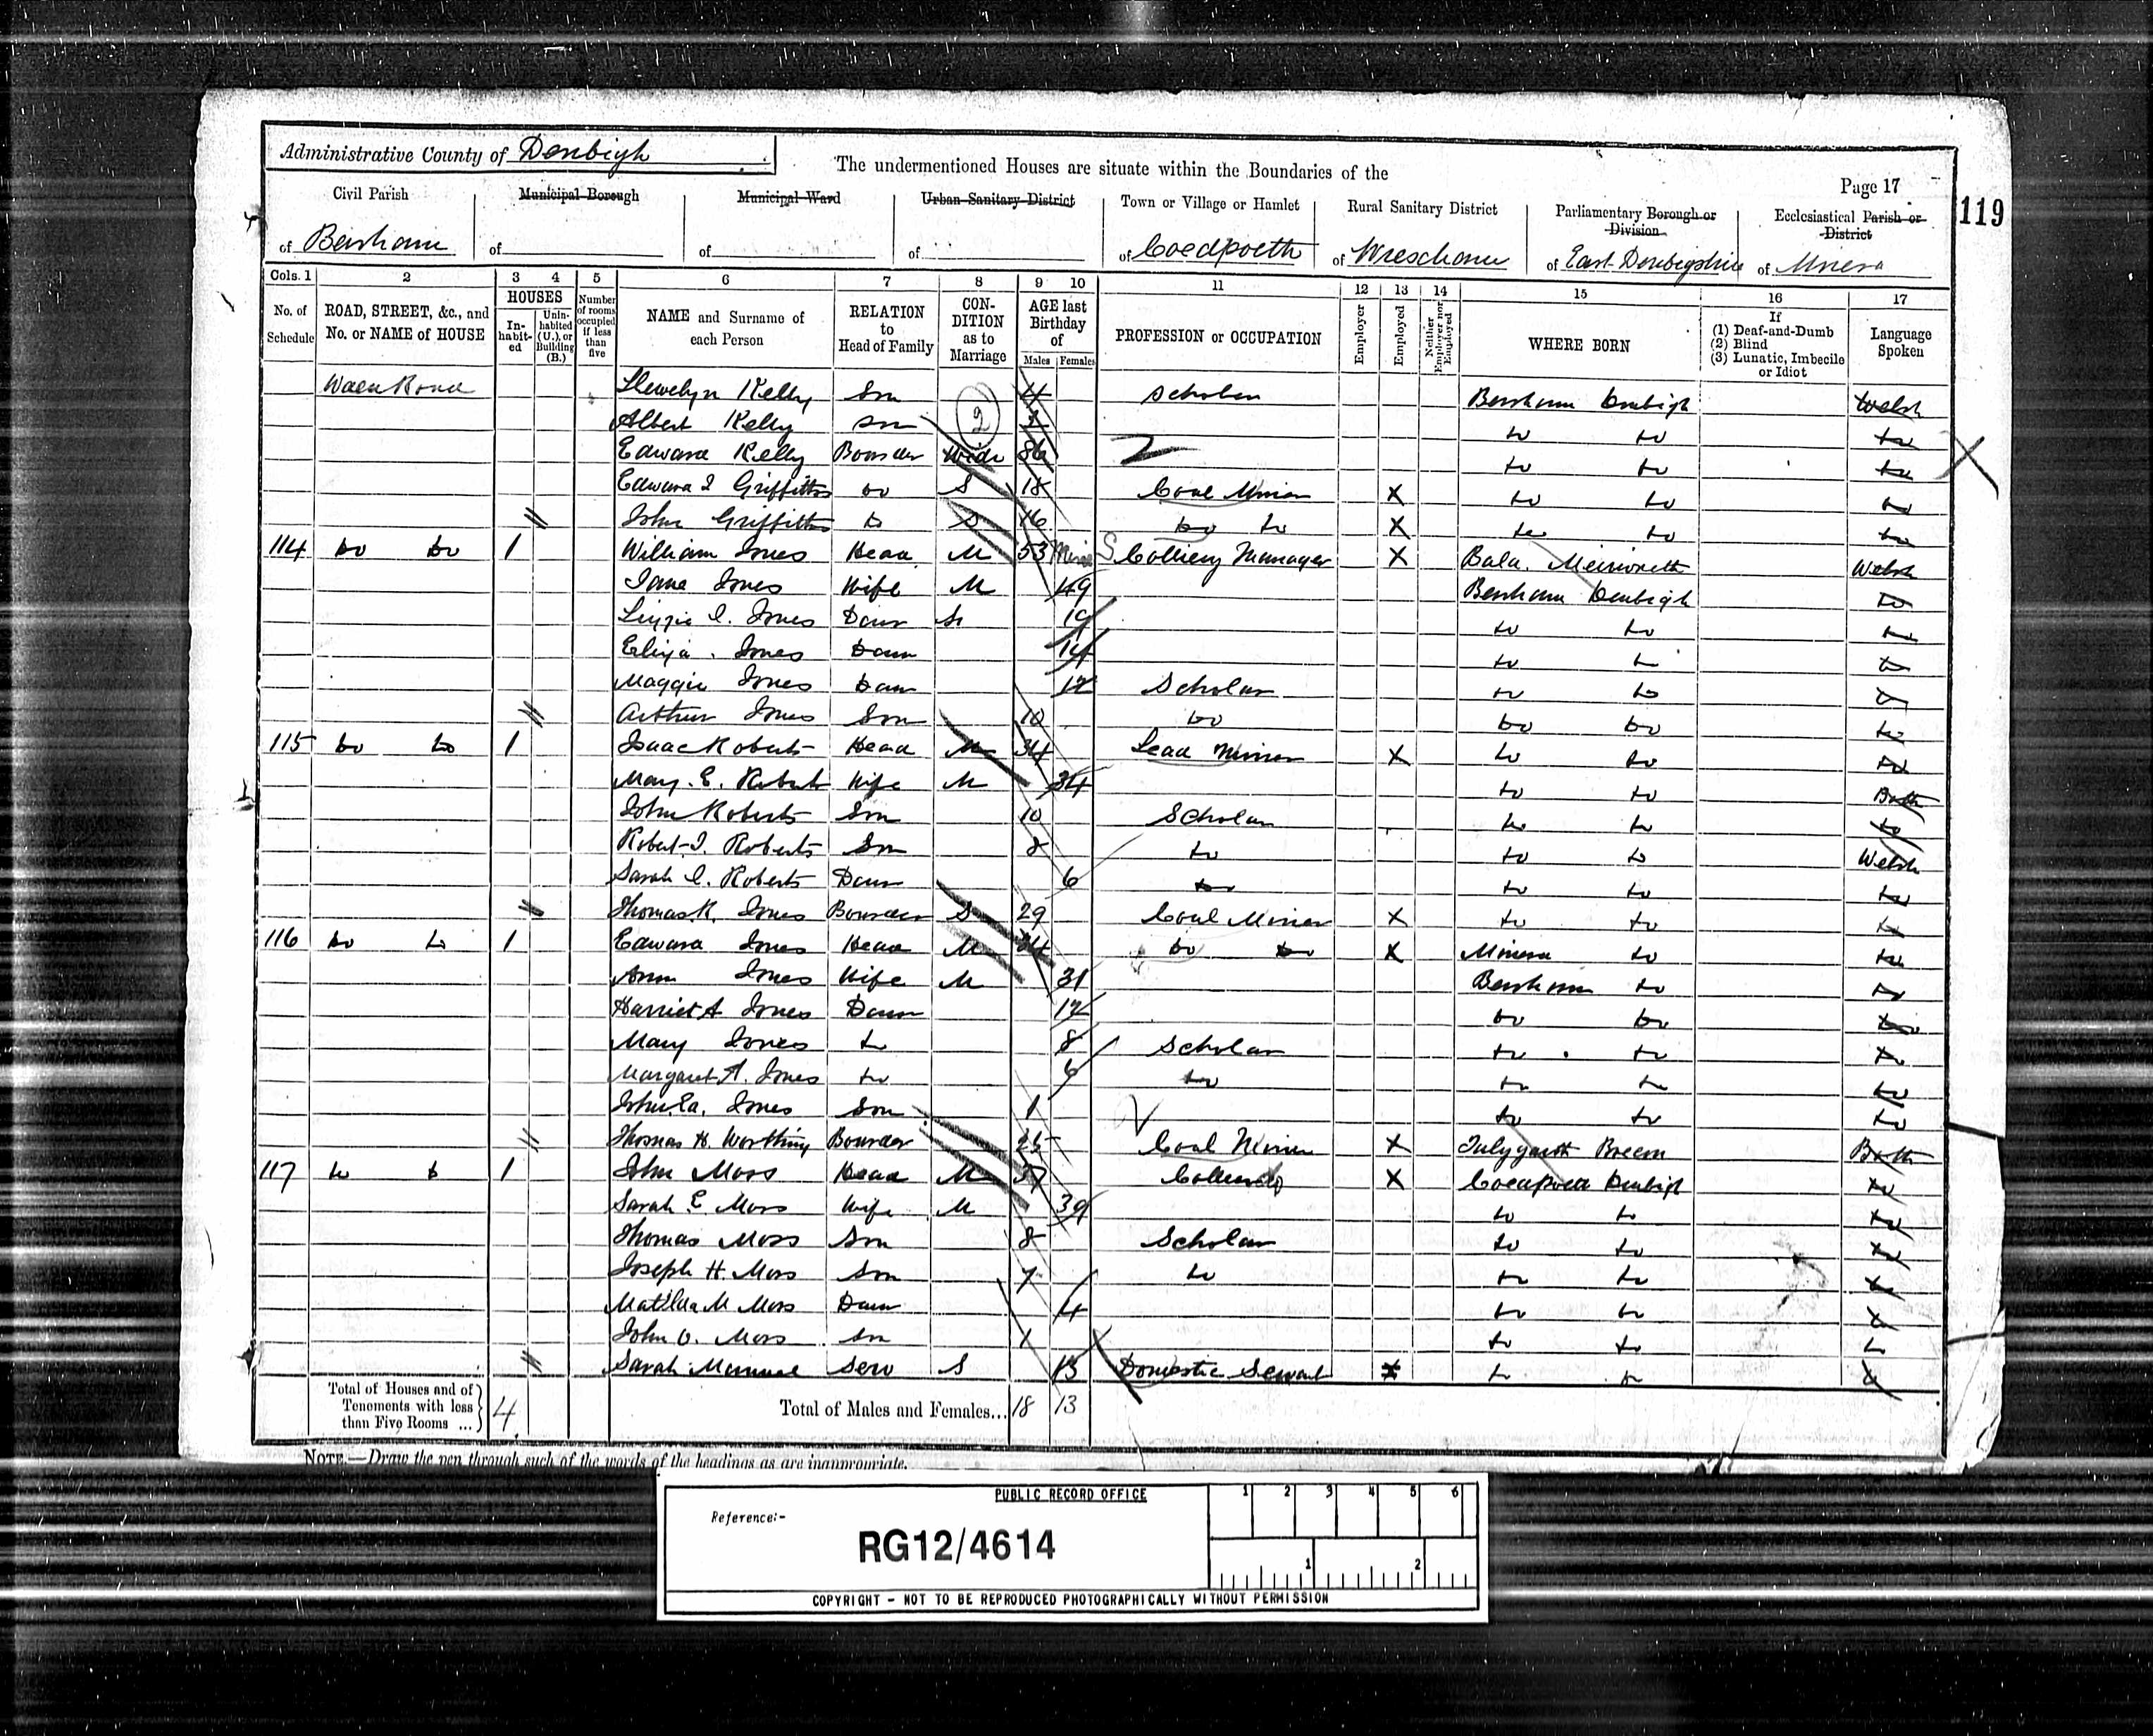 Administrative County of Denbigh
The undermentioned Houses are situate within the Boundaries of the
Page 17
119
Civil Parish Municipal Borough Municipal Ward Urban Sanitary District Town or Village or Hamlet Rural Sanitary District Parliamentary Borough or Division Ecclesiastical Parish or District
of Bersham of of of of Coedpoeth of Wrexham of East Denbigshire of Minera
Cols. 1 2 3 4 5 6 7 8 9 10 11 12 13 14 15 16 17
No. of Schedule ROAD, STREET, &c., and No. or NAME of HOUSE HOUSES Inhabited Uninhabited (U.), or Building (B.) Number of rooms occupied if less than five NAME and Surname of each Person RELATION to Head of Family CONDITION as to Marriage AGE last Birthday of Males Females PROFESSION or OCCUPATION Employer Employed Neither Employer nor Employed WHERE BORN If (1) Deaf-and-Dumb (2) Blind (3) Lunatic, Imbecile or Idiot Language Spoken
Waen Road Llewelyn Kelly Son 4 Scholar Bersham Denbigh Welsh
Albert Kelly Son 2 do do do
Edward Kelly Boarder Widr 86 do do do
Edward I Griffiths do S 18 Coal Miner X do do do
John Griffiths do S 16 do do X do do do
114 do do 1 William Jones Head M 53 Colliery Manager X Bala, Merioneth Welsh
Jane Jones Wife M 49 Bersham Denbigh do
Lizzie I. Jones Daur S 19 do do do
Eliza Jones Daur 14 do do do
Maggie Jones Daur 12 Scholar do do do
Arthur Jones Son 10 do do do do
115 do do 1 Isaac Roberts Head M 34 Lead Miner X do do do
Mary. E. Robert Wife M 34 do do Both
John Roberts Son 10 Scholar do do do
Robert I. Roberts Son 8 do do do Welsh
Sarah I. Roberts Daur 6 do do do do
Thomas R. Jones Boarder S 29 Coal Miner X do do do
116 do do 1 Edward Jones Head M 34 do do X Minera do do
Ann Jones Wife M 31 Bersham do do
Harriet A Jones Daur 12 do do do
Mary Jones do 8 Scholar do do do
Margaret A. Jones do 6 do do do do
John Ed. Jones Son 1 do do do
Thomas H. Worthing Boarder 25 Coal Miner X Talygarth Brecon Both
117 do do 1 John Moss Head M 37 X Coedpoeth Denbigh do
Sarah E Moss Wife M 39 do do do
Thomas Moss Son 8 Scholar do do do
Joseph H. Moss Son 7 do do do do
Matilda M Moss Daur 4 do do do
John O. Moss Son 1 do do do
Sarah Manuel Serv S 13 Domestic Servant X do do do
Total of Houses and of Tenements with less than Five Rooms ... 4. Total of Males and Females... 18 13
NOTE.—Draw the pen through such of the words of the headings as are inappropriate.
PUBLIC RECORD OFFICE
1 2 3 4 5 6
Reference:-
RG12/4614
1 2
COPYRIGHT - NOT TO BE REPRODUCED PHOTOGRAPHICALLY WITHOUT PERMISSION